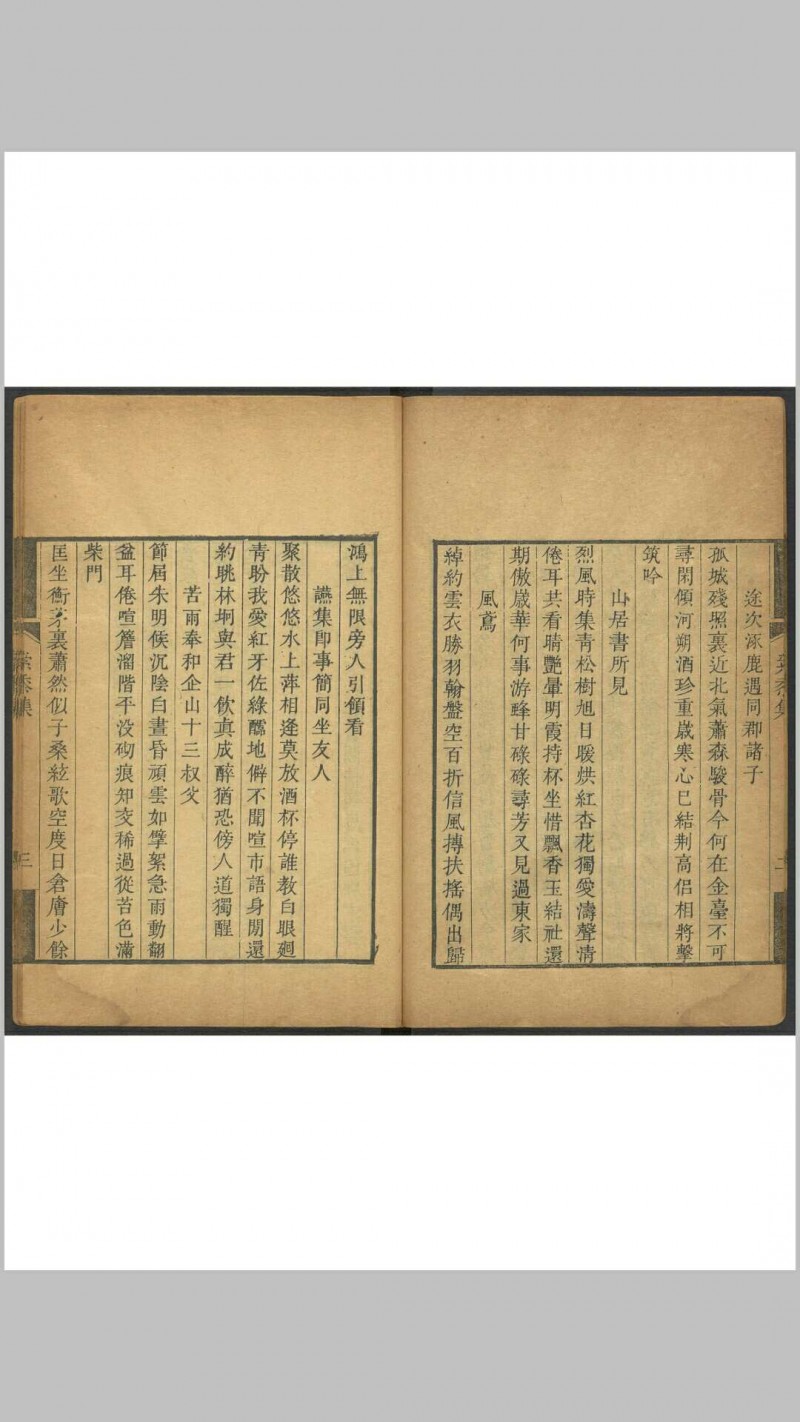 途次涿鹿遇同郡諸子
孤城殘照裏近北氣蕭森駿骨今何在金臺不可
尋閑傾河朔酒珍重歲寒心已結荆高侣相將擊
筑吟
山居書所見
烈風時集靑松樹旭日暖烘紅杏花獨愛濤聲淸
倦耳共看晴艷暈明霞持杯坐惜飄香玉結社還
期傲歲華何事游蜂甘碌碌尋芳又見過東家
風鳶
綽約雲衣勝羽翰盤空百折信風摶扶搖偶出歸
鴻上無限旁人引領看
讌集即事簡同坐友人
聚散悠悠水上萍相逢莫放酒杯停誰教白眼廻
靑盼我愛紅牙佐綠醹地僻不聞喧市語身閒還
約眺林坰與君一飲眞成醉猶恐傍人道獨醒
苦雨奉和企山十三叔父
節屆朱明候沉陰白晝昏頑雲如擘絮急雨動翻
盆耳倦喧簷溜階平没砌痕知交稀過從苔色滿
柴門
匡坐衡茅裏蕭然似子桑絃歌空度日倉庾少餘
三